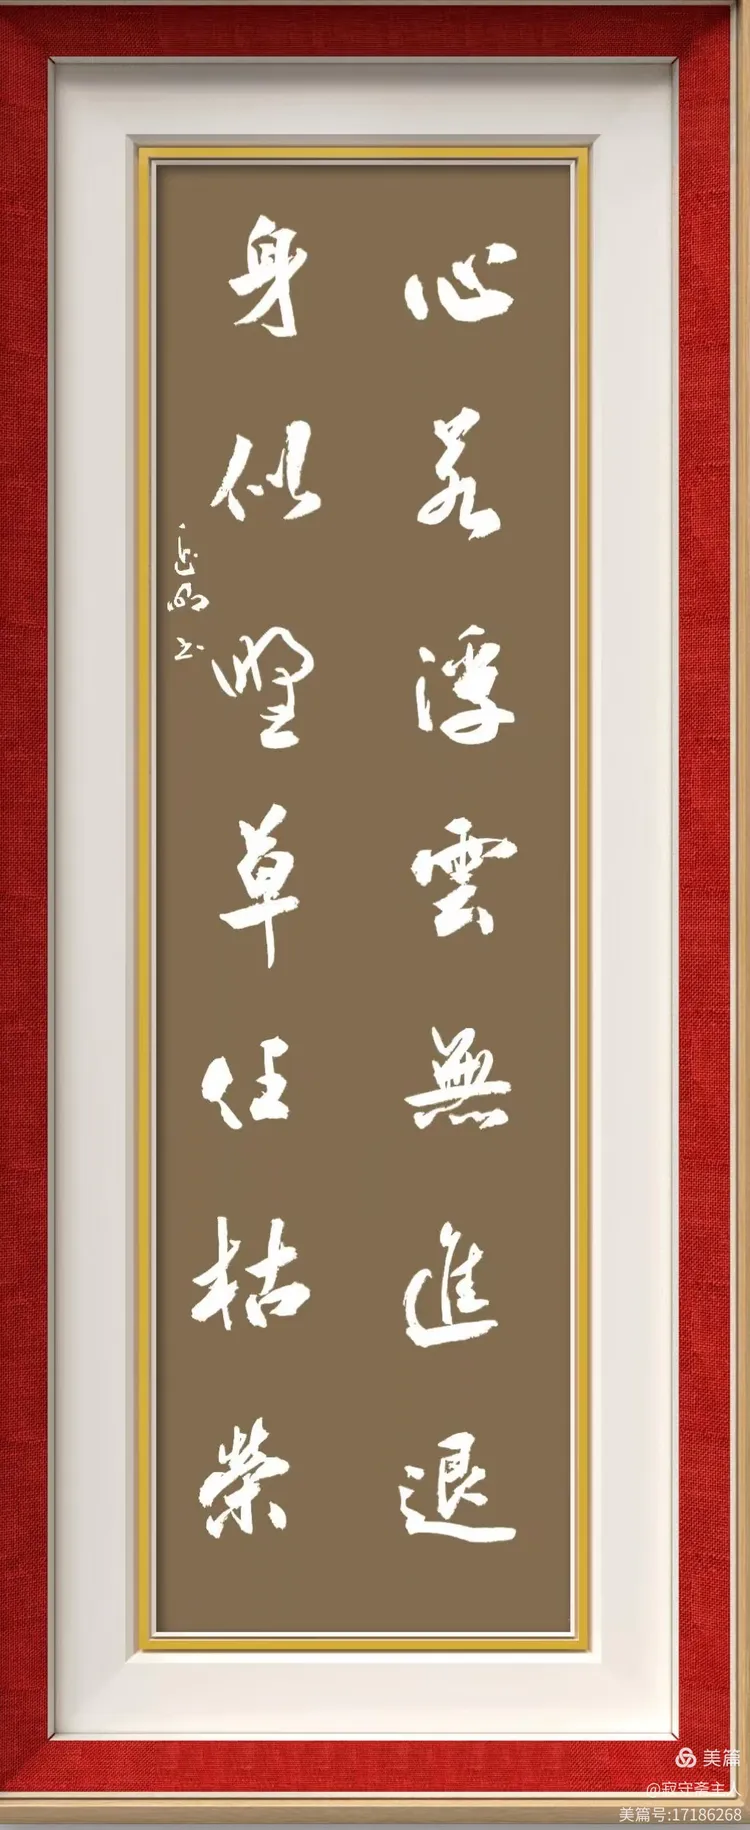 心若浮雲無進退
身似野草任枯榮
美篇
@寂守斋主人
美篇号:17186268